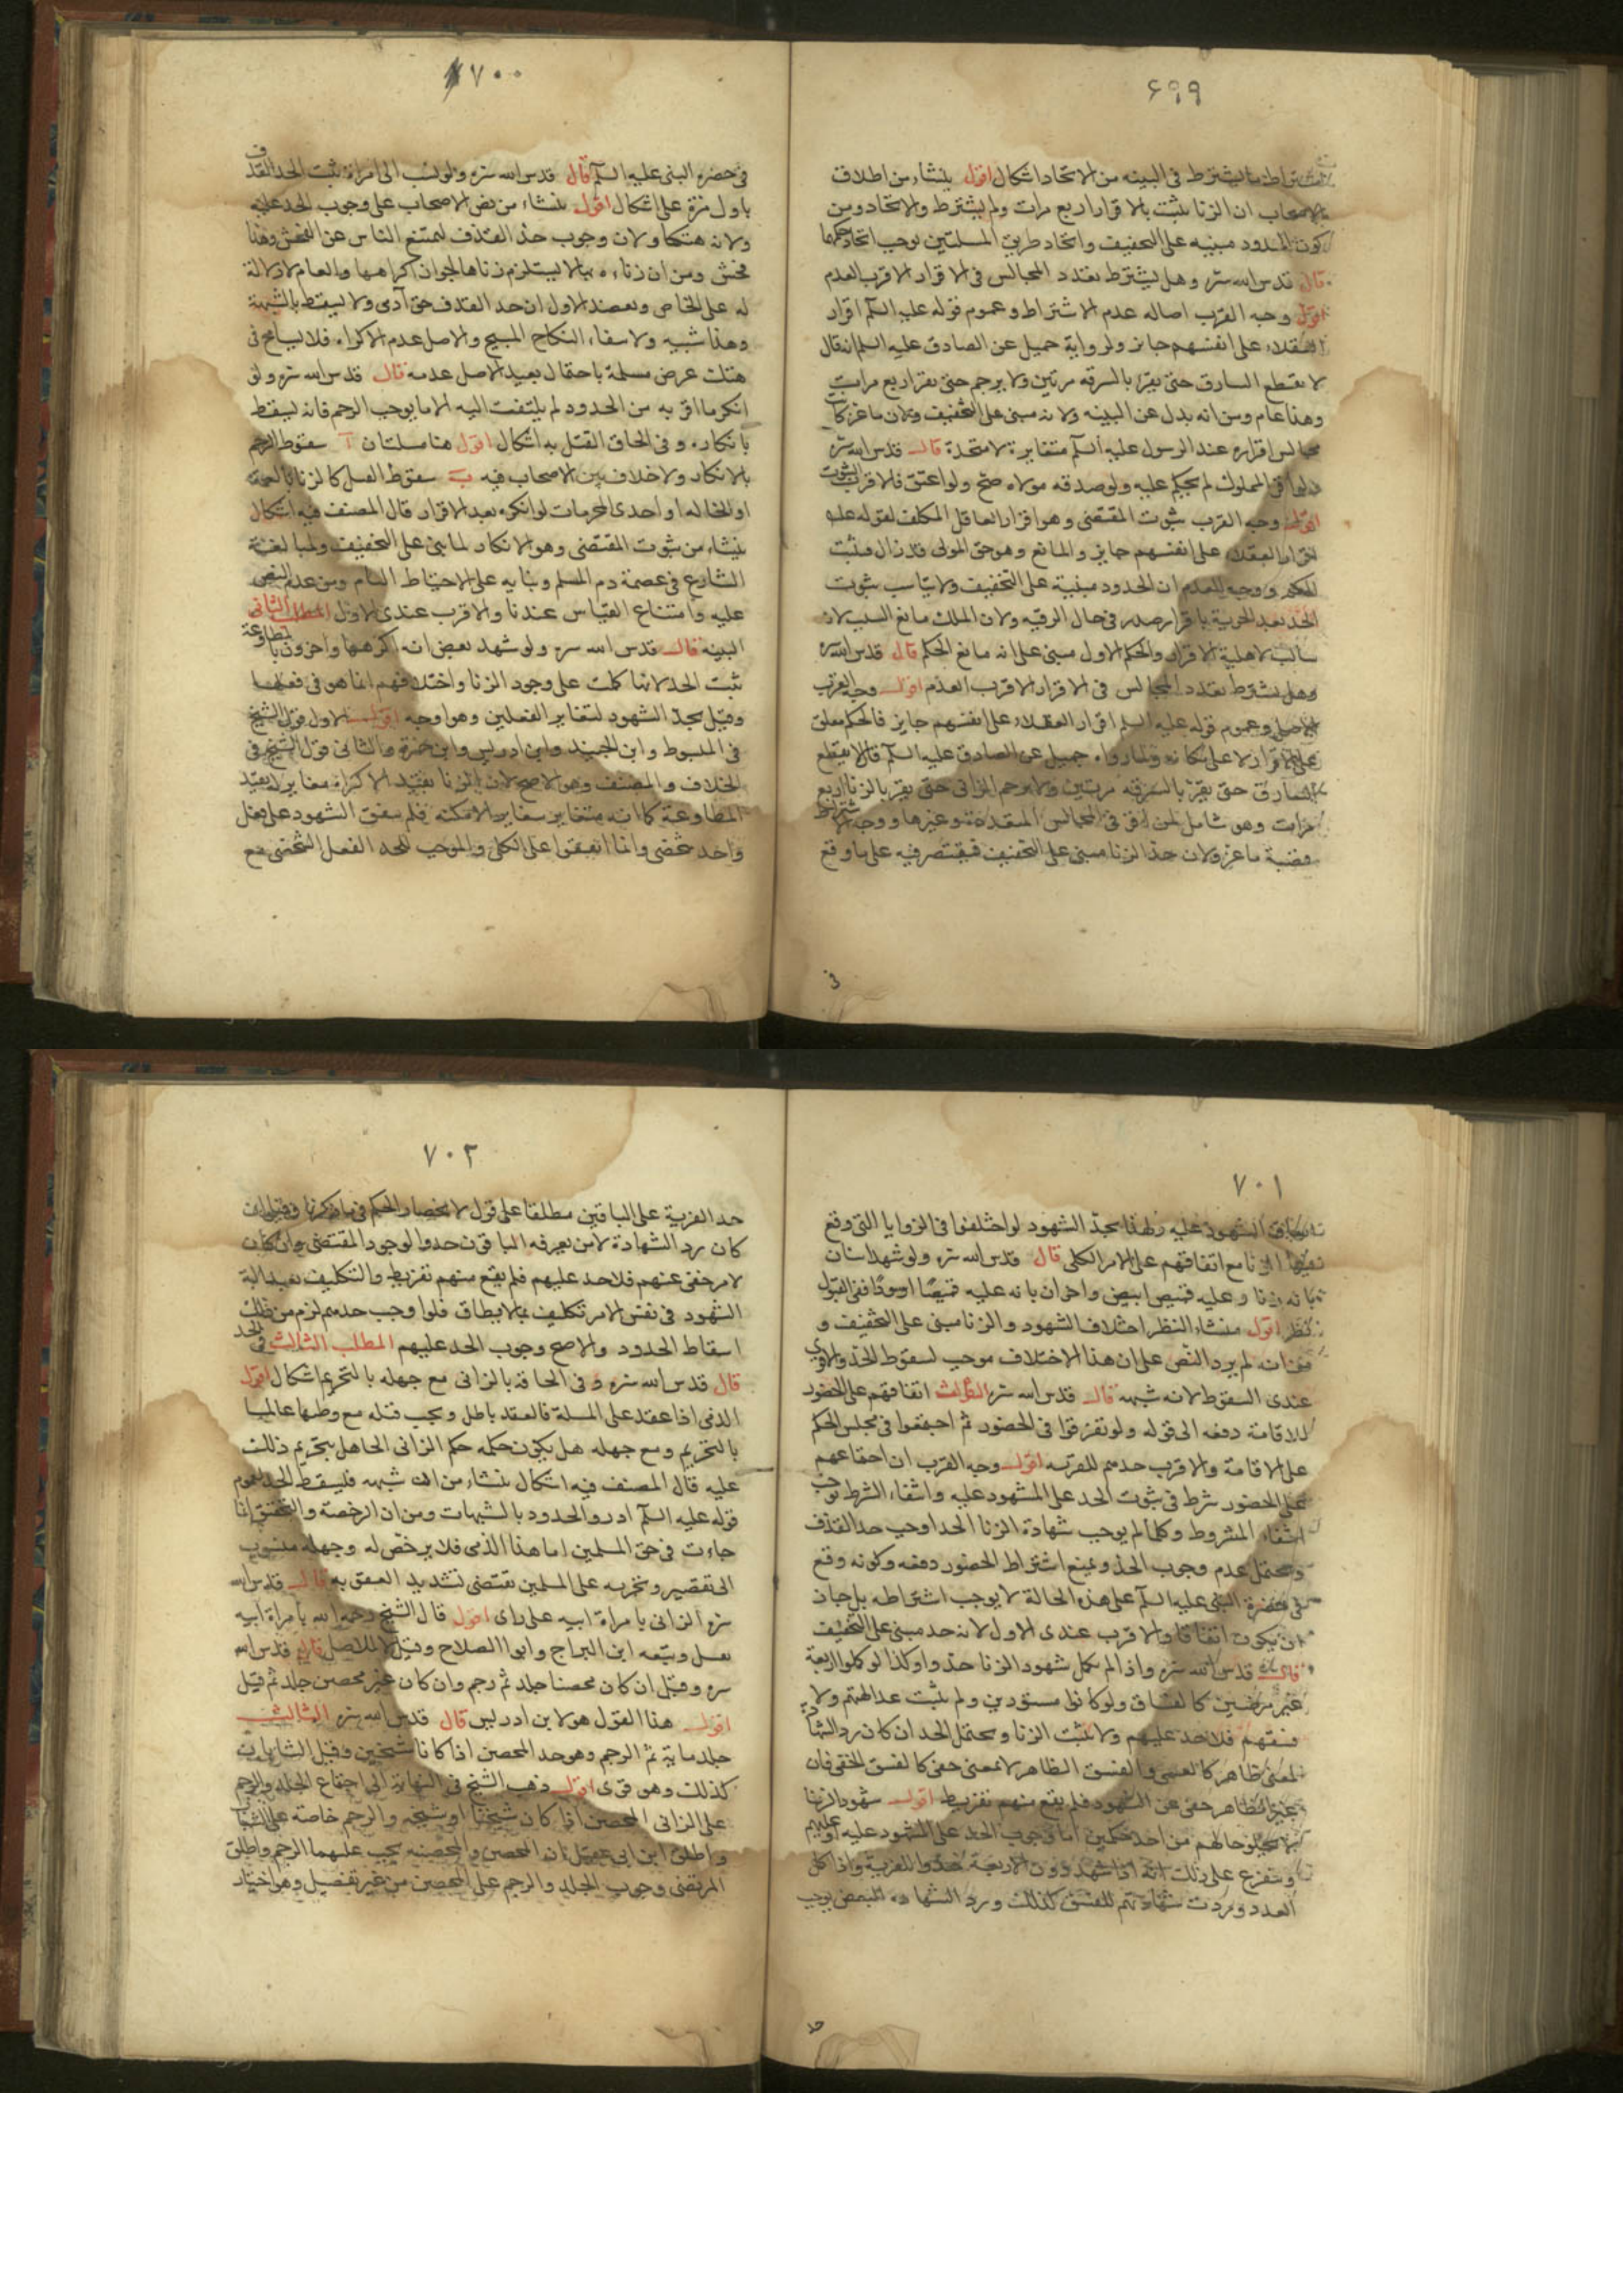 ۶۹۹
اشتراط ما يشترط فى البينه من الاتحاد اشكال اقول ينشاء من اطلاق
الاصحاب ان الزنا يثبت بالاقرار اربع مرات ولم يشترط والاتحاد ومن
كون الحدود مبنيه على التخفيف واتحاد طريق المسلتين يوجب اتحاد حكمهما
قال قدس الله سره وهل يشترط تعدد المجالس فى الاقرار الاقرب العدم
اقول وجه القرب اصاله عدم الاشتراط وعموم قوله عليه السلم اقرار
العقلاء على انفسهم جايز ولرواية جميل عن الصادق عليه السلم انه قال
لا يقطع السارق حتى يقر بالسرقه مرتين ولا يرجم حتى يقر اربع مرات
وهذا عام ومن انه بدل عن البينه ولانه مبنى على التخفيف ولان ماعز كان
مجالس اقراره عند الرسول عليه السلم متغايرة لا متحدة قال قدس الله سره
ولو اقر المملوك لم يحكم عليه ولو صدقه مولاه صح ولو اعتق فالاقرب الثبوت
اقول وجه القرب ثبوت المقتضى وهو اقرار العاقل المكلف لقوله عليه
اقرار العقلاء على انفسهم جايز والمانع وهو حق المولى قد زال فيثبت
الحكم ووجه العدم ان الحدود مبنية على التخفيف ولا يناسب ثبوت
الحد بعد الحرية باقرار صدر فى حال الرقيه ولان الملك مانع السبب لانه
سالب لاهلية الاقرار والحكم الاول مبنى على انه مانع الحكم قال قدس الله سره
وهل يشترط تعدد المجالس فى الاقرار الاقرب العدم اقول وجه القرب
الاصل وعموم قوله عليه السلم اقرار العقلاء على انفسهم جايز فالحكم معلق
على الاقرار لا على مكانه ولما رواه جميل عن الصادق عليه السلم قال لا يقطع
السارق حتى يقر بالسرقه مرتين ولا يرجم الزانى حتى يقر بالزنا اربع
مرات وهو شامل لمن اقر فى المجالس المتعددة وغيرها ووجه الاشتراط
قضية ماعز ولان حد الزنا مبنى على التخفيف فيقتصر فيه على ما وقع
فى
۷۰۰
فى حضره النبى عليه السلم قال قدس الله سره ولو نسب الى امراة ثبت الحد القذف
باول مرة على اشكال اقول ينشاء من نص الاصحاب على وجوب الحد عليه
ولانه هتكها ولان وجوب حد القذف ليمتنع الناس عن الفحش وهذا
فحش ومن ان زناءه بها لا يستلزم زناها لجواز اكراهها والعام لا دلالة
له على الخاص ويعضد الاول ان حد القذف حق ادمى ولا يسقط بالشبهة
وهذا شبيه ولاسفاء النكاح المبيح والاصل عدم الاكراه فلا يسامح فى
هتك عرض مسلمة باحتمال بعيد الاصل عدمه قال قدس الله سره ولو
انكر ما اقر به من الحدود لم يلتفت اليه الا ما يوجب الرجم فانه يسقط
بانكاره وفى الحاق القتل به اشكال اقول هنا مسلتان آ سقوط الرجم
بالانكار ولا خلاف بين الاصحاب فيه ب سقوط القتل كالزنا بالعمة
او الخالة او احدى المحرمات لو انكره بعد الاقرار قال المصنف فيه اشكال
ينشاء من ثبوت المقتضى وهو الانكار لما بنى على التخفيف ولمبالغة
الشارع فى عصمة دم المسلم وبنايه على الاحتياط التام ومن عدم النص
عليه وامتناع القياس عندنا والاقرب عندى الاول المطلب الثانى
البينه قال قدس الله سره ولو شهد بعض انه اكرهها واخرون بالمطاوعة
ثبت الحد لانها كملت على وجود الزنا واختلافهم انما هو فى فعلها
وقيل يحد الشهود لتغاير الفعلين وهو اوجه اقول الاول قول الشيخ
فى المبسوط وابن الجنيد وابن ادريس وابن حمزة والثانى قول الشيخ فى
الخلاف والمصنف وهو الاصح لان الزنا بقيد الاكراه مغاير له بقيد
المطاوعة كما انه يتغاير بتغاير الامكنه فلم يتفق الشهود على فعل
واحد شخصى وانما اتفقوا على الكلى والموجب للحد الفعل الشخصى مع
۷۰۱
اتفاق الشهود عليه ولهذا يحد الشهود لو اختلفوا فى الزوايا التى وقع
فيها الزنا مع اتفاقهم على الامر الكلى قال قدس الله سره ولو شهد اثنان
بانه زنا وعليه قميص ابيض واخران بانه عليه قميصا اسودا ففى القبول
نظر اقول منشاء النظر اختلاف الشهود والزنا مبنى على التخفيف و
من انه لم يرد النص على ان هذا الاختلاف موجب لسقوط الحد والاقوى
عندى السقوط لانه شبهه قال قدس الله سره الثالث اتفاقهم على الحضور
للاقامة دفعه الى قوله ولو تفرقوا فى الحضور ثم اجتمعوا فى مجلس الحكم
على الاقامة والاقرب حدهم للفريه اقول وجه القرب ان اجتماعهم
على الحضور شرط فى ثبوت الحد على المشهود عليه وانتفاء الشرط يوجب
انتفاء المشروط وكلما لم يوجب شهادة الزنا الحد اوجب حد القذف
ويحتمل عدم وجوب الحد ويمنع اشتراط الحضور دفعه وكونه وقع
فى حضرة النبى عليه السلم على هذه الحالة لا يوجب اشتراطه بل جاز
ان يكون اتفاقا والاقرب عندى الاول لانه حد مبنى على التخفيف
قال قدس الله سره واذا لم يكمل شهود الزنا حدوا وكذا لو كملوا اربعة
غير مرضيين كالفساق ولو كانوا مستورين ولم يثبت عدالتهم ولا
فسقهم فلا حد عليهم ولا يثبت الزنا ويحتمل الحد ان كان رد الشهادة
لمعنى ظاهر كالعمى والفسق الظاهر لا لمعنى خفى كالفسق الخفى فان
غير الظاهر خفى عن الشهود فلم يقع منهم تفريط اقول شهود الزنا
لا يخلو حالهم من احد حكمين اما وجوب الحد على المشهود عليه او عليهم
ويتفرع على ذلك انه اذا شهد دون الاربعة حدوا للفرية واذا كمل
العدد وردت شهادتهم للفسق كذلك ورد الشهاده للبعض يوجب
حد
۷۰۲
حد الفرية على الباقين مطلقا على قول لانحصار الحكم فيما ذكرنا وقيل ان
كان رد الشهادة لامر يعرفه الباقون حدوا لوجود المقتضى وان كان
لامر خفى عنهم فلا حد عليهم فلم يقع منهم تفريط والتكليف بعدالة
الشهود فى نفس الامر تكليف بما لا يطاق فلو اوجب حدهم لزم من ذلك
اسقاط الحدود والاصح وجوب الحد عليهم المطلب الثالث فى الحد
قال قدس الله سره وفى الحاقه بالزانى مع جهله بالتحريم اشكال اقول
الذمى اذا عقد على المسلمة فالعقد باطل ويجب قتله مع وطيها عالما
بالتحريم ومع جهله هل يكون حكمه حكم الزانى الجاهل بتحريم ذلك
عليه قال المصنف فيه اشكال ينشاء من انه شبهه فليسقط الحد لعموم
قوله عليه السلم ادروا الحدود بالشبهات ومن ان الرخصة والتخفيف انما
جاءت فى حق المسلمين اما هذا الذمى فلا يرخص له وجهله منسوب
الى تقصيره وتحريه على المسلمين يقتضى تشديد العقوبه قال قدس الله
سره الزانى بامراة ابيه على راى اقول قال الشيخ رحمه الله بامراة ابيه
يقتل وتبعه ابن البراج وابو الصلاح وقيل لا للاصل قال قدس الله
سره وقيل ان كان محصنا جلد ثم رجم وان كان غير محصن جلد ثم قتل
اقول هذا القول هو لابن ادريس قال قدس الله سره الثالث
جلد ماية ثم الرجم وهو حد المحصن اذا كانا شيخين وقيل الشابان
كذلك وهو قوى اقول ذهب الشيخ فى النهاية الى اجتماع الجلد والرجم
على الزانى المحصن اذا كان شيخا او شيخة والرجم خاصة على الشاب
واطلق ابن ابى عقيل ان المحصن والمحصنه يجب عليهما الرجم واطلق
المرتضى وجوب الجلد والرجم على المحصن من غير تفصيل وهو اختيار